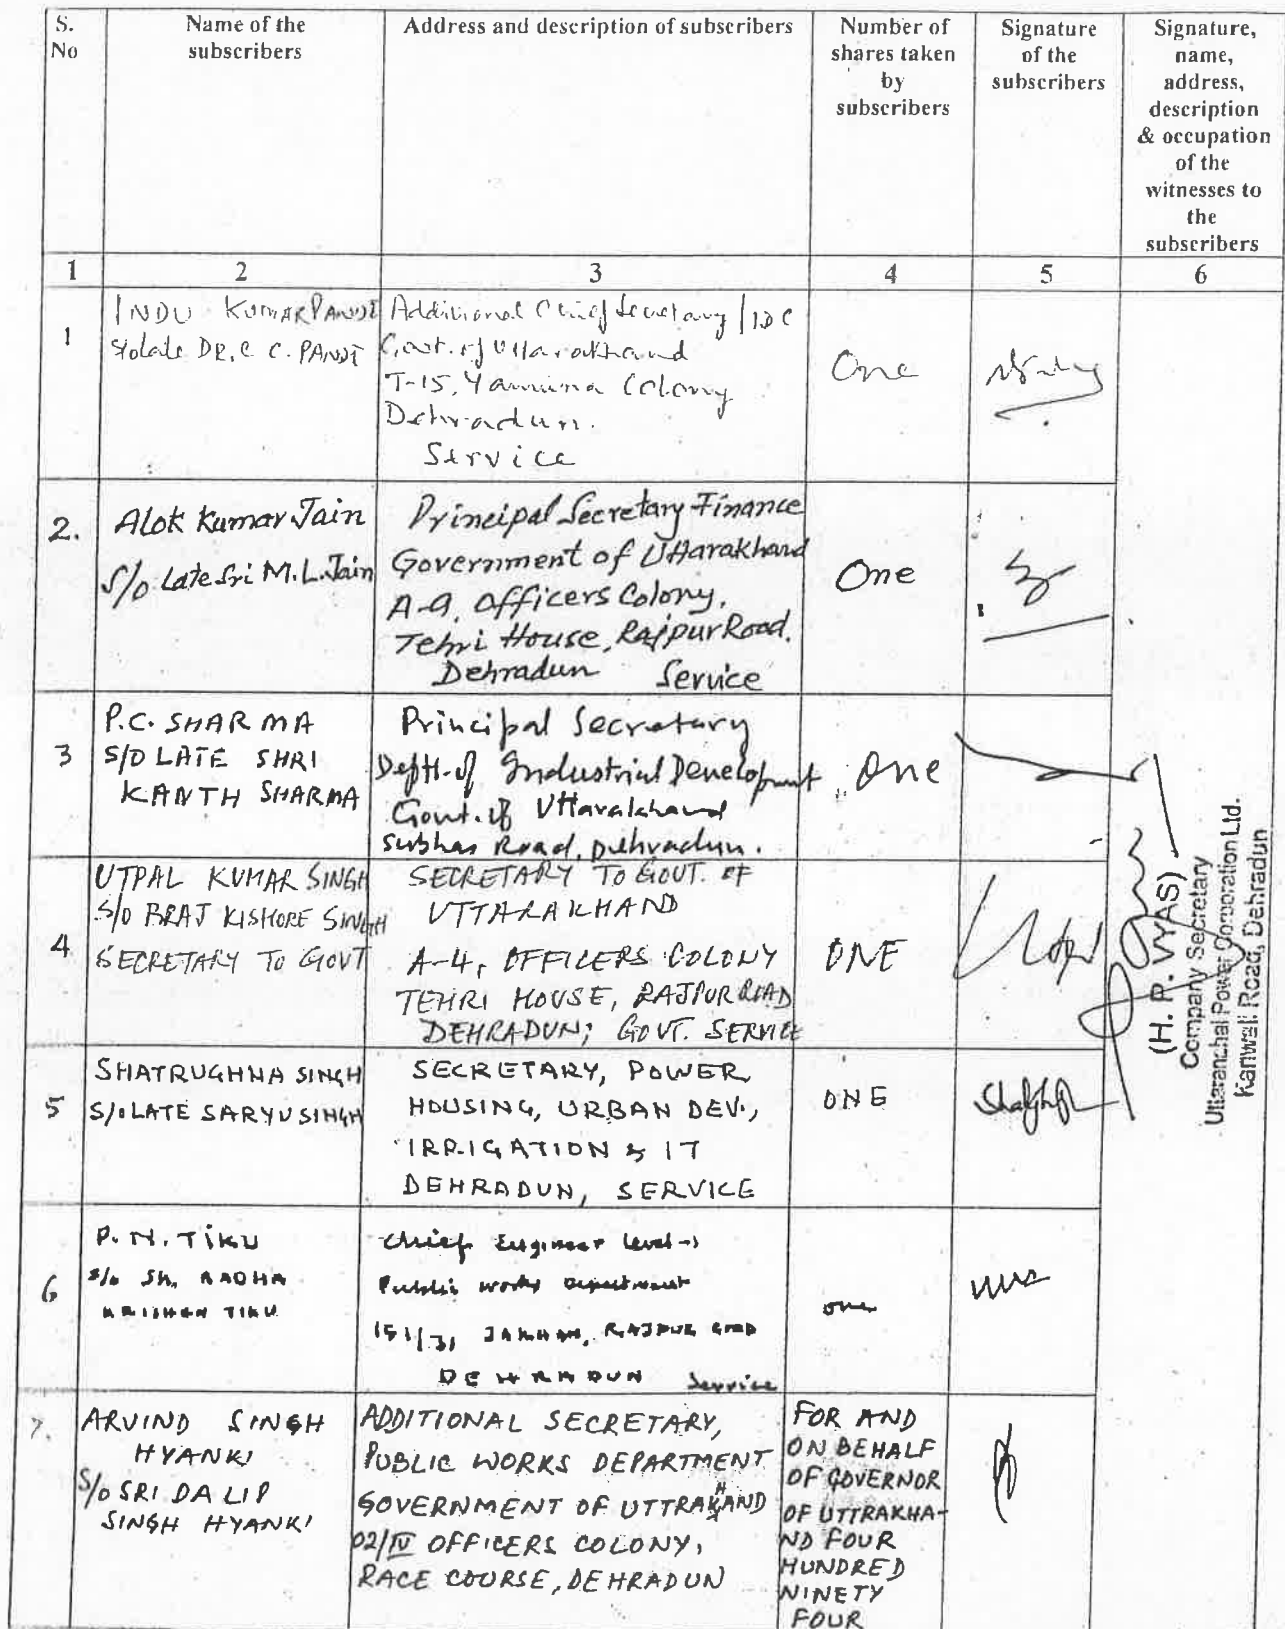 S. No
Name of the subscribers
Address and description of subscribers
Number of shares taken by subscribers
Signature of the subscribers
Signature, name, address, description & occupation of the witnesses to the subscribers
1 2 3 4 5 6
1
INDU KUMAR PANDE
S/o late DR. C. C. PANDE
Additional Chief Secretary / IDC
Govt. of Uttarakhand
T-15, Yamuna Colony
Dehradun.
Service
One
2.
Alok Kumar Jain
S/o Late Sri M.L. Jain
Principal Secretary Finance
Government of Uttarakhand
A-9, Officers Colony,
Tehri House, Rajpur Road.
Dehradun Service
One
3
P.C. SHARMA
S/O LATE SHRI
KANTH SHARMA
Principal Secretary
Deptt. of Industrial Development
Govt. of Uttarakhand
Subhas Road, Dehradun.
One
4
UTPAL KUMAR SINGH
S/o BRAJ KISHORE SINGH
SECRETARY TO GOVT
SECRETARY TO GOVT. OF
UTTARAKHAND
A-4, OFFICERS COLONY
TEHRI HOUSE, RAJPUR ROAD
DEHRADUN; GOVT. SERVICE
ONE
5
SHATRUGHNA SINGH
S/o LATE SARYU SINGH
SECRETARY, POWER,
HOUSING, URBAN DEV.,
IRRIGATION & IT
DEHRADUN, SERVICE
ONE
6
P. N. TIKU
S/o Sh. RADHA
KRISHEN TIKU
Chief Engineer Level-1
Public Works Department
151/31 JAKHAN, RAJPUR ROAD
DEHRADUN Service
one
7.
ARVIND SINGH
HYANKI
S/o SRI DALIP
SINGH HYANKI
ADDITIONAL SECRETARY,
PUBLIC WORKS DEPARTMENT
GOVERNMENT OF UTTRAKHAND
02/IV OFFICERS COLONY,
RACE COURSE, DEHRADUN
FOR AND
ON BEHALF
OF GOVERNOR
OF UTTRAKHA-
ND FOUR
HUNDRED
NINETY
FOUR
(H. P. VYAS)
Company Secretary
Uttaranchal Power Corporation Ltd.
Kanwali Road, Dehradun